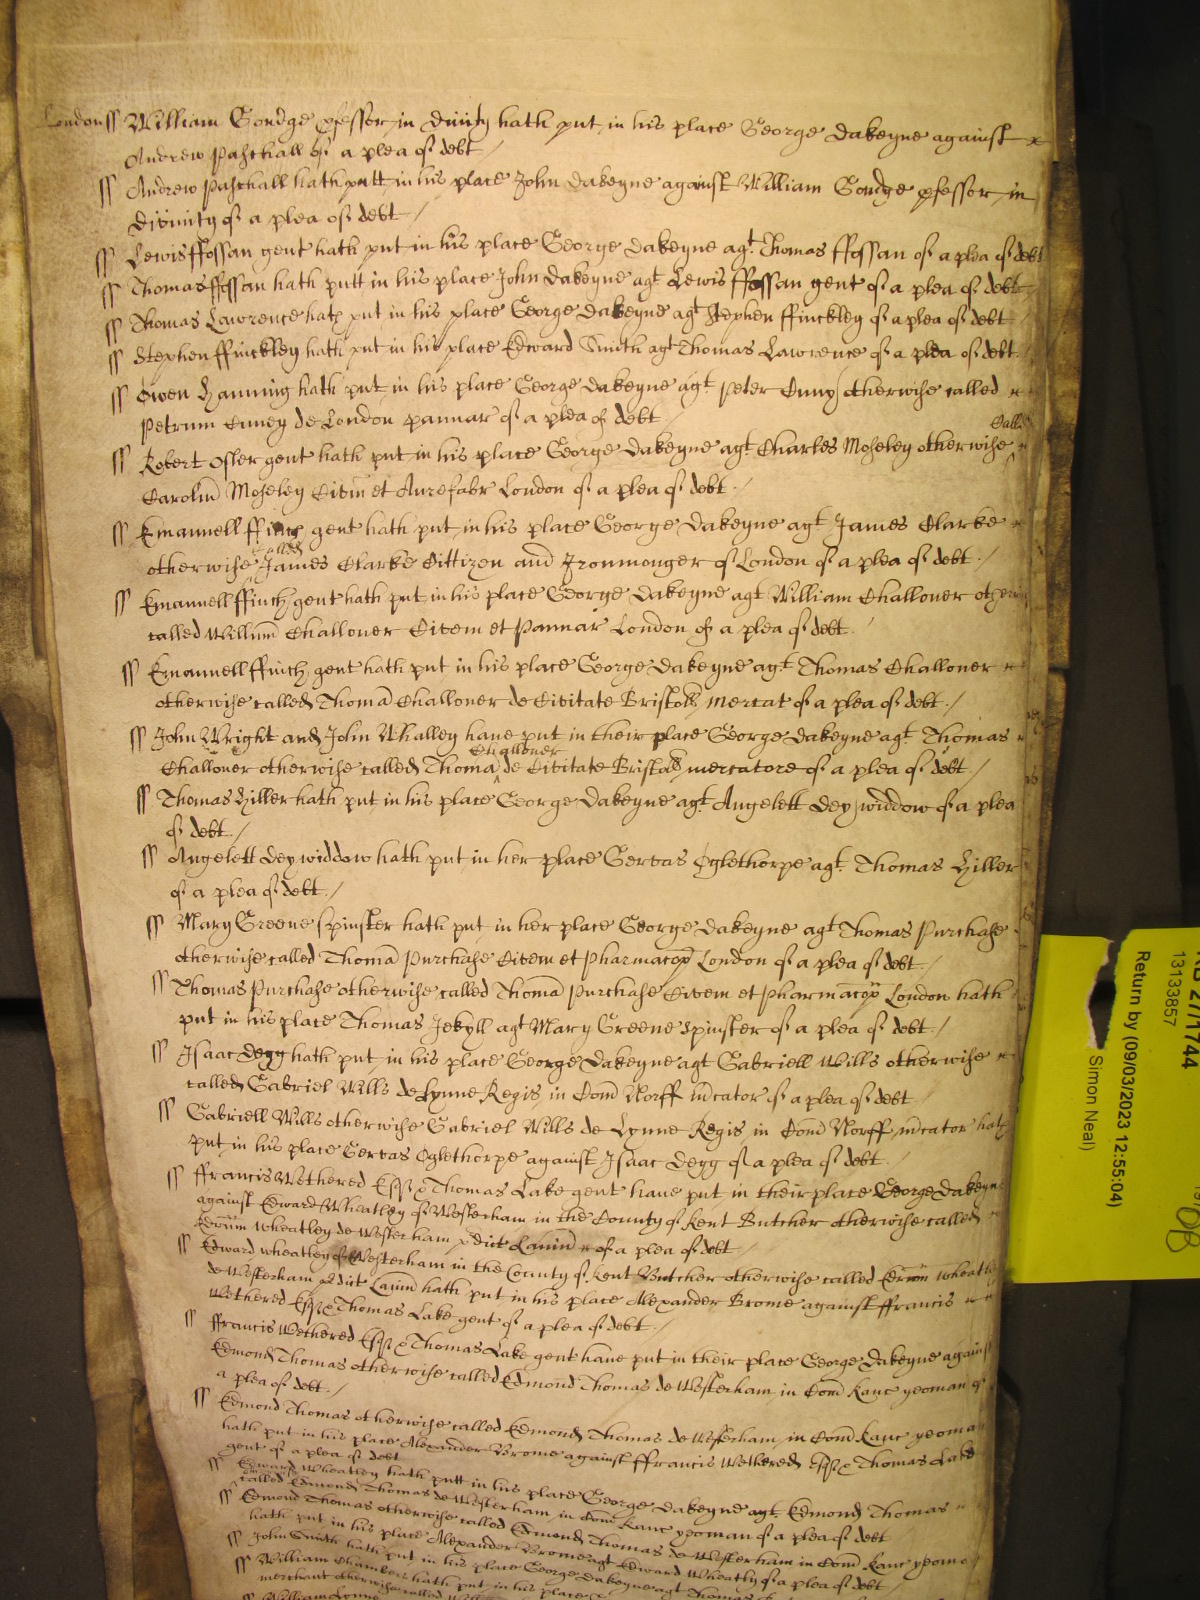 London ss William Goudge pfessor in Divity hath put in his place George Dakeyne against
Andrew Paschall of a plea of debt /
ss Andrew Paschall hath putt in his place John Dakeyne against William Goudge pfessor in
Divinity of a plea of debt /
ss Lewis ffossan gent hath put in his place George Dakeyne agt. Thomas ffossan of a plea of debt
ss Thomas ffossan hath putt in his place John Dakeyne agt Lewis ffossan gent of a plea of debt
ss Thomas Lawrence hath put in his place George Dakeyne agt Stephen ffinckley of a plea of debt
ss Stephen ffinckley hath put in his place Edward Smith agt Thomas Lawrence of a plea of debt.
ss Owen Hanning hath put in his place George Dakeyne agt. Peter otherwise called
Petrum de London pannar of a plea of debt /
ss Robert Osler gent hath put in his place George Dakeyne agt. Charles Moseley otherwise called
Carolm Moseley Civem et Aurefabr London of a plea of debt. /
ss Emanuell ffinch gent hath put in his place George Dakeyne agt James Clarke
otherwise called James Clarke Cittizen and Ironmonger of London of a plea of debt. /
ss Emanuell ffinch gent hath put in his place George Dakeyne agt William Challoner
called Willum Challoner Civem et Pannar London of a plea of debt. /
ss Emanuell ffinch gent hath put in his place George Dakeyne agt. Thomas Challoner
otherwise called Thoma Challoner de Civitate Bristoll mercat of a plea of debt. /
ss John Wright and John Whalley haue put in their place George Dakeyne agt. Thomas
Challoner otherwise called Thoma Challoner de Civitate Bristoll mercatore of a plea of debt. /
ss Thomas Hiller hath put in his place George Dakeyne agt. Angelett Dey widdow of a plea
of debt. /
ss Angelett Dey widdow hath put in her place Gervas Oglethorpe agt. Thomas Hiller
of a plea of debt. /
ss Mary Greene spinster hath put in her place George Dakeyne agt Thomas Purchase
otherwise called Thoma Purchase Civem et Pharmacop London of a plea of debt. /
ss Thomas Purchase otherwise called Thoma Purchase Civem et Pharmacop London hath
put in his place Thomas Jekyll agt Mary Greene Spinster of a plea of debt. /
ss Isaac Degg hath put in his place George Dakeyne agt Gabriell Wills otherwise
called Gabriel Wills de Lynne Regis in Com Norff mcator of a plea of debt /
ss Gabriell Wills otherwise Gabriel Wills de Lynne Regis in Com Norff mcator hath
put in his place Gervas Oglethorpe against Isaac Degg of a plea of debt. /
ss ffrancis Wethered Esqr & Thomas Lake gent haue put in their place George Dakeyne
against Edward Wheatley of Westerham in the County of Kent Butcher otherwise called
Edrum Wheatley de Westerham pdict Lanium of a plea of debt /
ss Edward Wheatley of Westerham in the County of Kent Butcher otherwise called Edrum Wheatley
de Westerham pdict Lanium hath put in his place Alexander Brome against ffrancis
Wethered Esqr & Thomas Lake gent of a plea of debt. /
ss ffrancis Wethered Esqr & Thomas Lake gent haue put in their place George Dakeyne against
Edmond Thomas otherwise called Edmond Thomas de Westerham in Com Kanc yeoman of
a plea of debt. /
ss Edmond Thomas otherwise called Edmond Thomas de Westerham in Com Kanc yeoman
hath put in his place Alexander Brome against ffrancis Wethered Esqr & Thomas Lake
gent of a plea of debt
ss Edward Wheatley hath putt in his place George Dakeyne agt. Edmond Thomas
otherwise called Edmond Thomas de Westerham in Com Kanc yeoman of a plea of debt
ss Edmond Thomas otherwise called Edmond Thomas de Westerham in Com Kanc yeoman
hath put in his place Alexander Brome agt Edward Wheatly of a plea of debt /
ss John Smith hath put in his place George Dakeyne agt Thomas
ss William Chambers hath put in his place
merchant otherwise called
ss William
27/1744
13133857
Return by (09/03/2023 12:55:04)
Simon Neal)